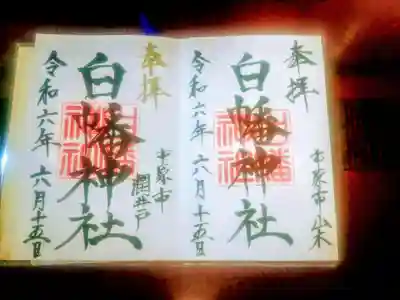 奉拝
市原市 山木
白幡神社
白幡神社
令和六年 六月十五日
奉拝
市原市 潤井戸
白幡神社
白幡神社
令和六年 六月十五日